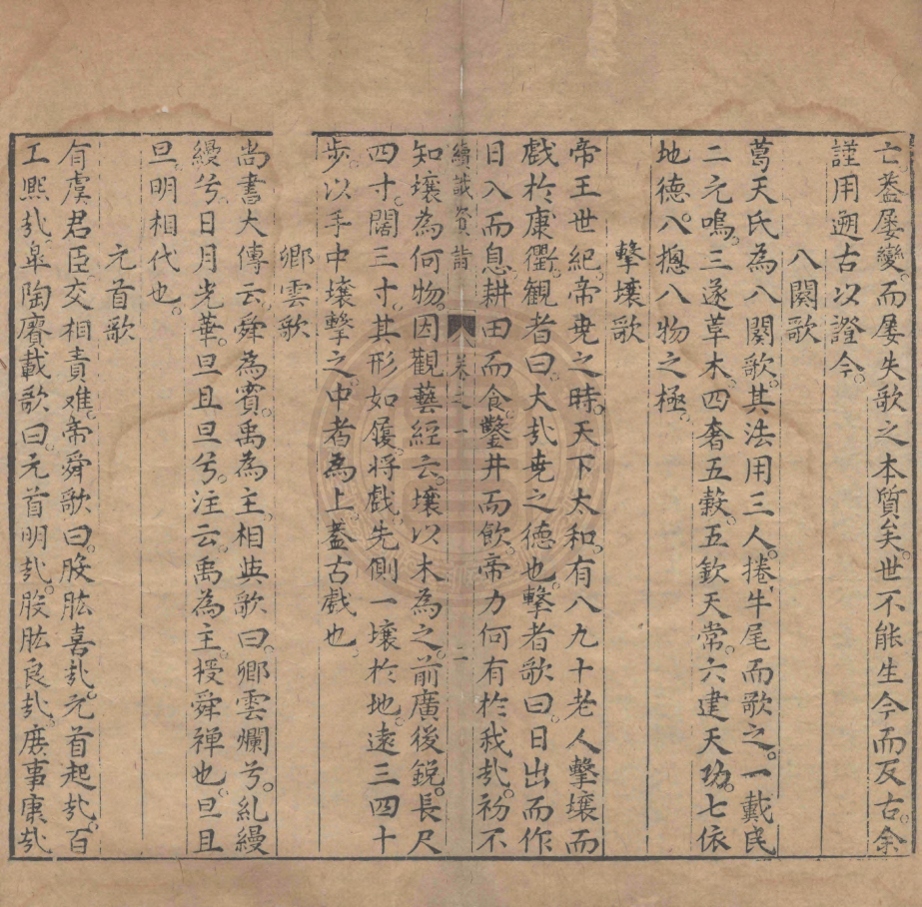 亡。葢屢變。而屢失歌之本質矣。世不能生今而反古。余
謹用遡古以證今。
八闋歌
葛天氏為八闋歌。其法用三人。捲牛尾而歌之。一戴民
二元鳴。三遂草木。四奢五穀。五欽天常。六建天功。七依
地德。八摠八物之極。
擊壤歌
帝王世紀。帝尭之時。天下太和。有八九十老人擊壤而
戲於康衢。觀者曰。大㢤尭之德也。擊者歌曰。日出而作
日入而息。耕田而食。鑿井而飲。帝力何有於我㢤。初不
卷之一 二
知壤為何物。因觀藝經云。壤以木為之。前廣後銳。長尺
四寸。闊三寸。其形如履。將戲。先側一壤於地。遠三四十
步。以手中壤擊之。中者為上。葢古戲也。
卿雲歌
尚書大傳云。舜為賓。禹為主。相與歌曰。卿雲爛兮。糺縵
縵兮。日月光華。旦且旦兮。注云。禹為主。授舜禪也。旦且
旦。明相代也。
元首歌
有虞君臣。交相責难。帝舜歌曰。股肱喜㢤。元首起㢤。百
工熙㢤。皐陶賡載歌曰。元首明㢤。股肱良㢤。庶事康㢤